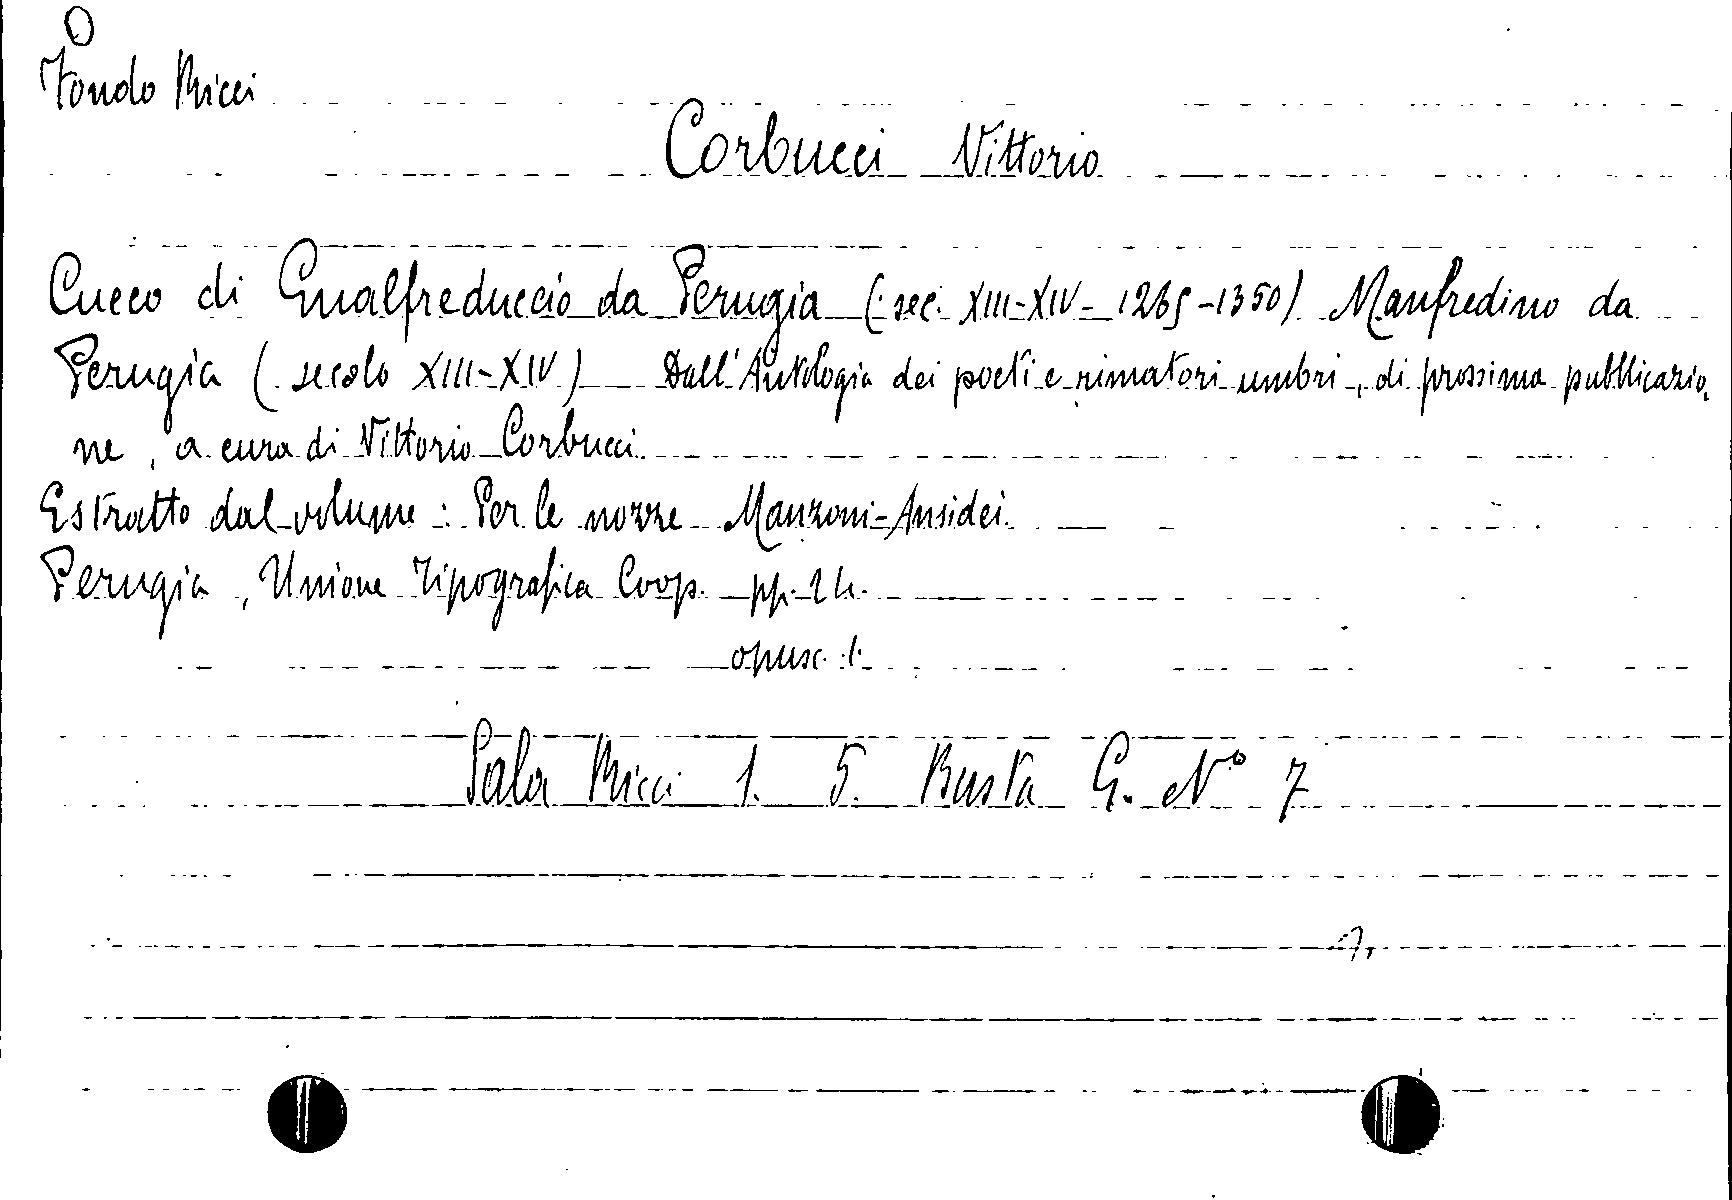 O
Fondo Ricci
Corbucci Vittorio
Cucco di Gualfreduccio da Perugia (sec. XIII-XIV - 1265-1350) Manfredino da
Perugia (secolo XIII-XIV) Dall'Antologia dei poeti e rimatori umbri, di prossima pubblicazio,
ne, a cura di Vittorio Corbucci.
Estratto dal volume: Per le nozze Manzoni-Ansidei.
Perugia, Unione Tipografica Coop. pp. 24.
opusc. 1.
Sala Ricci 1. 5. Busta G. N° 7